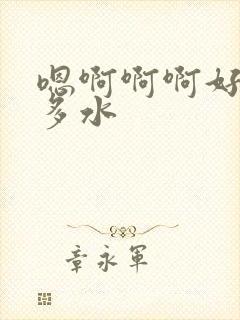 嗯啊啊啊好
多水
章永军